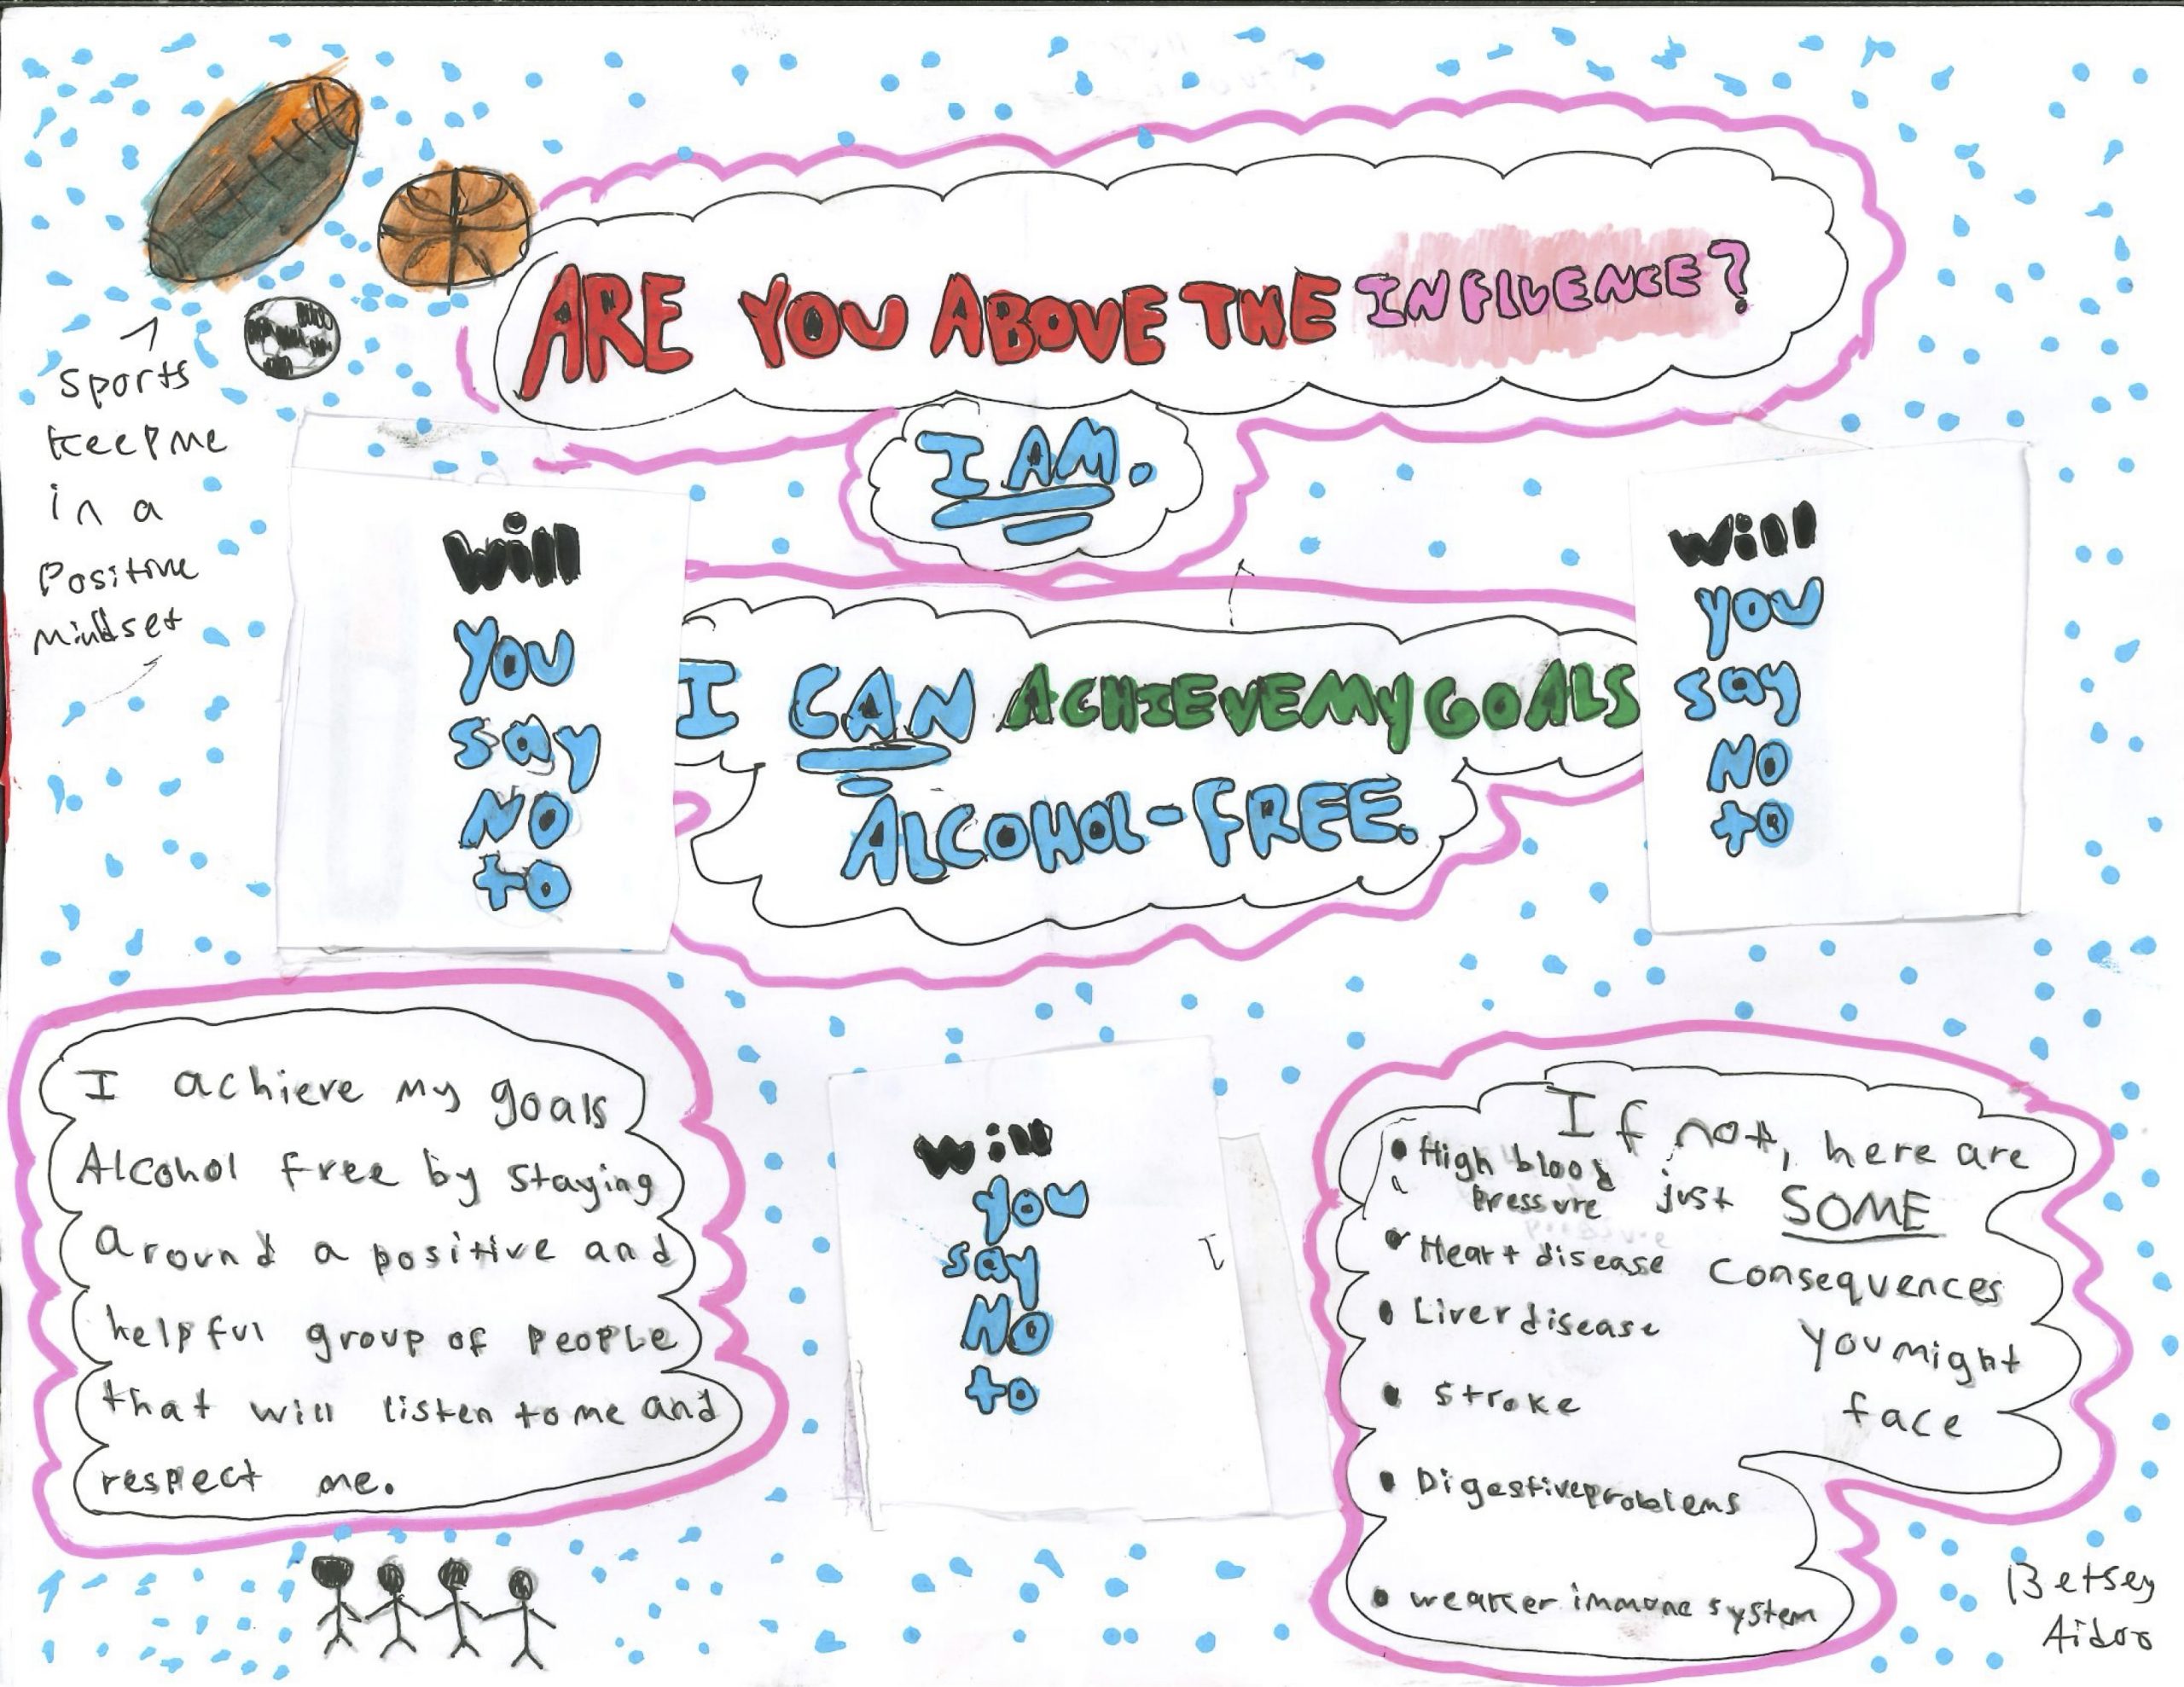 ARE YOU ABOVE THE INFLUENCE?
I AM.
sports
keep me
in a
Positive
mindset
will
You
say
NO
to
I CAN ACHIEVE MY GOALS
ALCOHOL-FREE.
will
you
say
NO
to
I achieve my goals
Alcohol free by staying
around a positive and
helpful group of people
that will listen to me and
respect me.
will
you
say
NO
to
If not, here are
just SOME
consequences
you might
face
• High blood
pressure
• Heart disease
• Liver disease
• stroke
• Digestive problems
• weaker immune system
Betsey
Aidoo